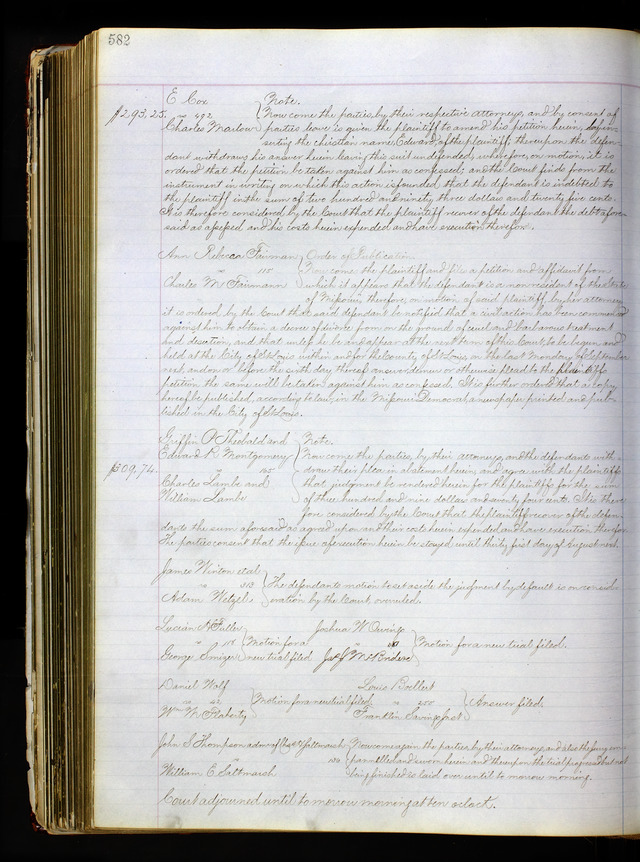 582
E Cox } Note.
$293.25. vs 492 Now come the parties, by their respective attorneys, and by consent of
Charles Marlow parties leave is given the plaintiff to amend his petition herein, by in-
serting the christian name, Edward, of the plaintiff; thereupon the defen-
dant withdraws his answer herein leaving this suit undefended, wherefore, on motion, it is
ordered that the petition be taken against him as confessed; and the Court finds from the
instrument in writing on which this action is founded, that the defendant is indebted to
the plaintiff in the sum of two hundred and ninety three dollars and twenty five cents.
It is therefore considered by the Court that the plaintiff recover of the defendant the debt afore-
said as assessed and his costs herein expended and have execution therefor.
Ann Rebecca Fairman } Order of Publication.
vs 115 Now come the plaintiff and files a petition and affidavit from
Charles M Fairmann which it appears that the defendant is a non resident of the State
of Missouri, therefore, on motion of said plaintiff, by her attorney
it is ordered by the Court that said defendant be notified that a civil action has been commenced
against him to obtain a decree of divorce from on the ground of cruel and barbarous treatment
and desertion, and that unless he be and appear at the next term of this Court, to be begun and
held at the City of St Louis within and for the County of St Louis, on the last Monday of September
next, and on or before the sixth day thereof answer demur or otherwise plead to the plaintiffs
petition the same will be taken against him as confessed. It is further ordered that a copy
hereof be published, according to law, in the Missouri Democrat, a newspaper printed and pub-
lished in the City of St Louis.
Griffin P Theobald and } Note.
Edward R Montgomery Now come the parties, by their attorneys, and the defendants with-
$309.74. vs draw their plea in abatement herein, and agree with the plaintiffs
Charles Lambe and that judgment be rendered herein for the plaintiffs for the sum
William Lambe of three hundred and nine dollars and seventy four cents. It is there
fore considered by the Court that the plaintiffs recover of the defen-
dants the sum aforesaid as agreed upon and their costs herein expended and have execution therefor
The parties consent that the issue of execution herein be stayed until thirty first day of August next
James Winton et al
vs } The defendants motion to set aside the judgment by default is on consid-
Adam Wetzel eration by the Court, overruled.
Lucian H Fuller Joshua W Owings
vs } Motion for a vs } Motion for a new trial filed.
George Smizer new trial filed Jas J McBride
Daniel Wolf Louis Boellert
vs } Motion for a new trial filed. vs 200 } Answer filed.
Wm McFlaherty Franklin Savings Inst
John S Thompson admr of Saltmarsh } Now come again the parties by their attorneys and also the jury em-
vs pannelled and sworn herein and thereupon the trial progressed but not
William E Saltmarsh being finished is laid over until to morrow morning.
Court adjourned until to morrow morning at ten oclock.